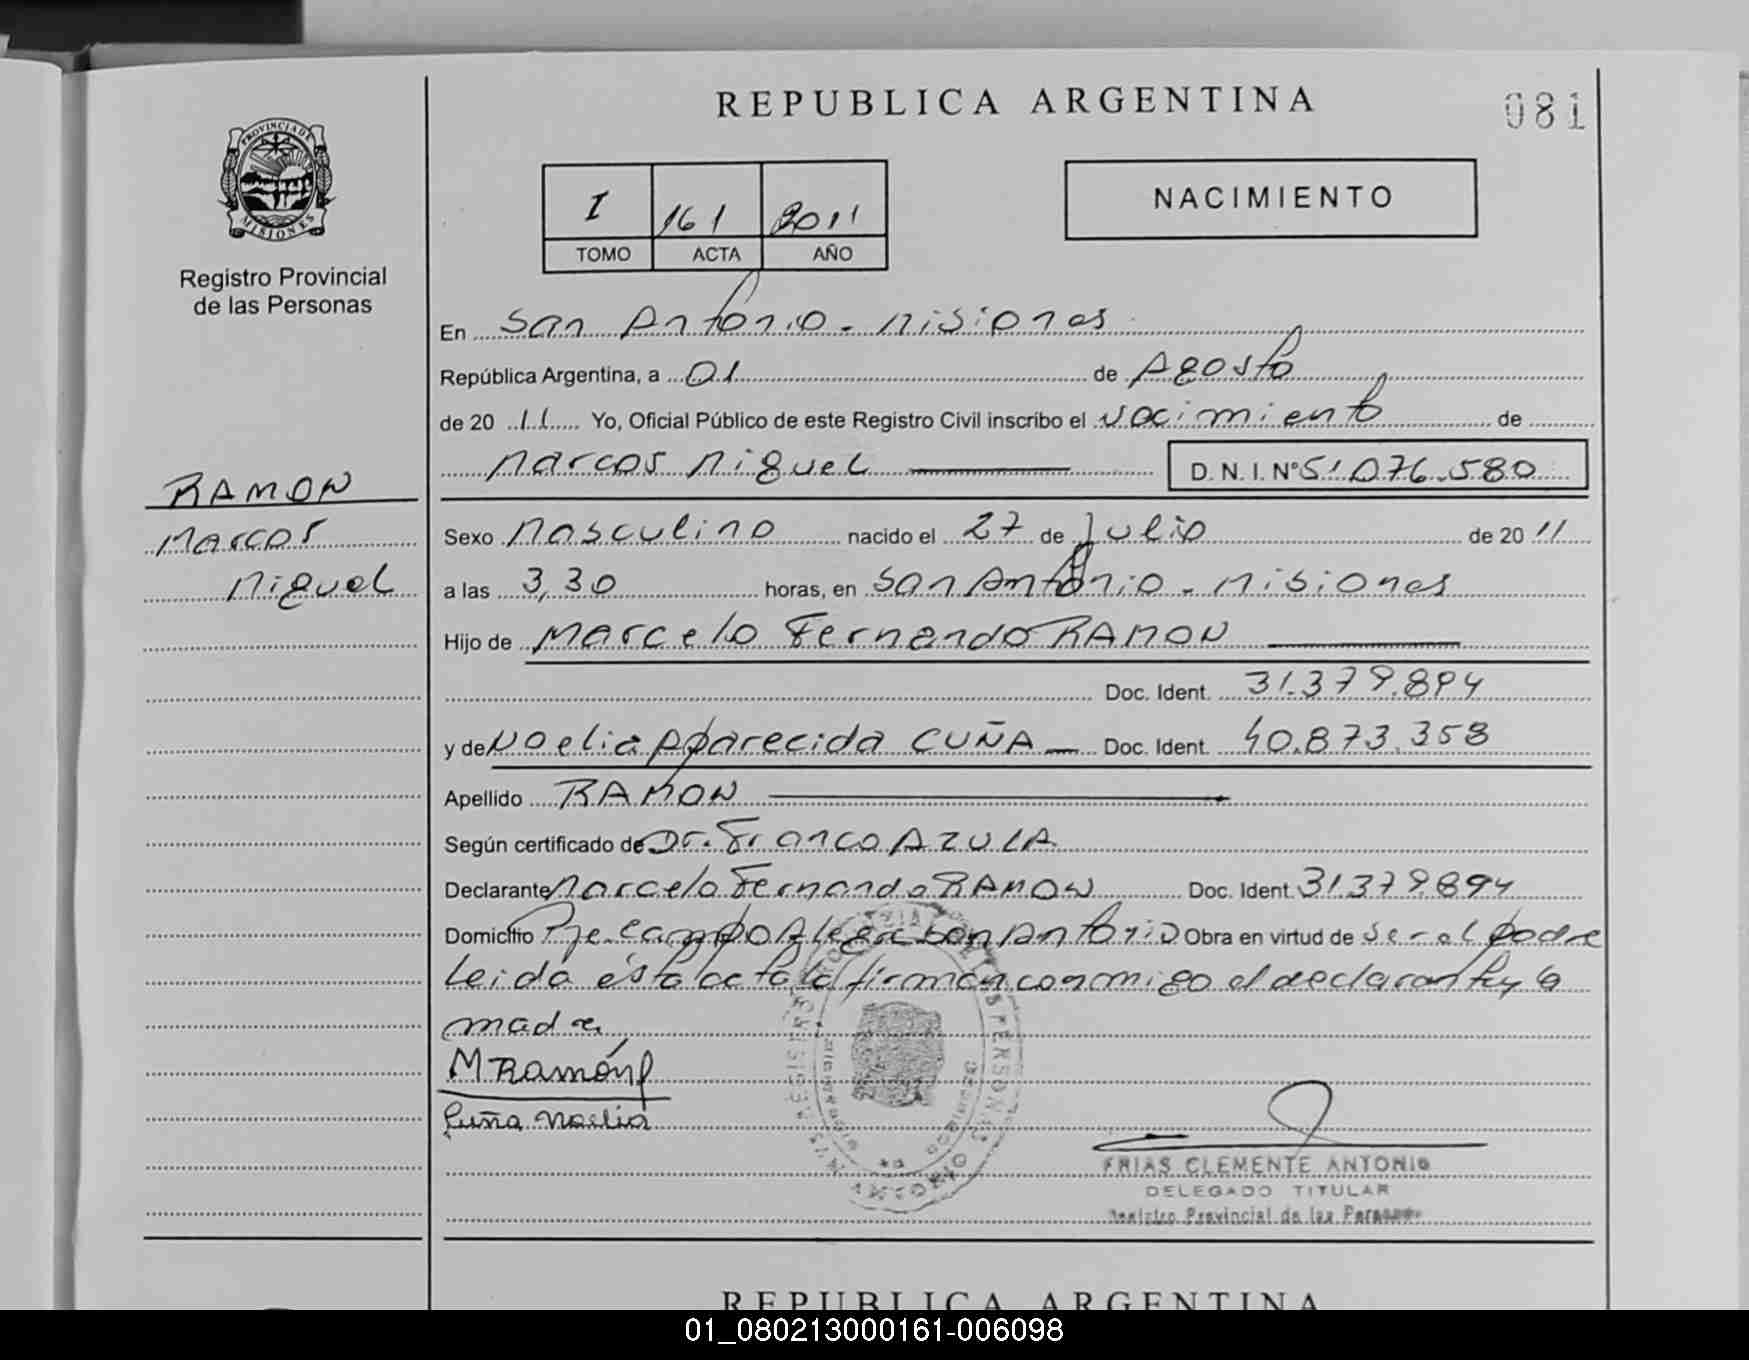 REPUBLICA ARGENTINA
081
PROVINCIA DE
MISIONES
Registro Provincial
de las Personas
I 161 2011
TOMO ACTA AÑO
NACIMIENTO
En San Antonio - Misiones
República Argentina, a 01 de Agosto
de 20 11 Yo, Oficial Público de este Registro Civil inscribo el Nacimiento de
Marcos Miguel D. N. I. Nº 51.076.580
RAMON
Marcos
Miguel
Sexo Masculino nacido el 27 de Julio de 20 11
a las 3,30 horas, en San Antonio - Misiones
Hijo de Marcelo Fernando RAMON
Doc. Ident. 31.379.894
y de Noelia Aparecida CUÑA Doc. Ident. 40.873.358
Apellido RAMON
Según certificado de Dr. Franco AZULA
Declarante Marcelo Fernando RAMON Doc. Ident. 31.379.894
Domicilio Pje. Campo Alegre San Antonio Obra en virtud de ser el padre
Leida ésta acta la firman conmigo el declarante y la
madre
M Ramón
Cuña Noelia
FRIAS CLEMENTE ANTONIO
DELEGADO TITULAR
Registro Provincial de las Personas
REPUBLICA ARGENTINA
01_080213000161-006098